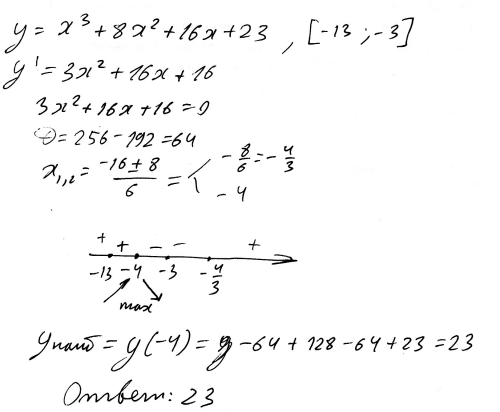 y = x³ + 8x² + 16x + 23 , [-13 ; -3]
y' = 3x² + 16x + 16
3x² + 16x + 16 = 0
D = 256 - 192 = 64
x₁,₂ = (-16 ± 8)/6 = < -8/6 = -4/3
-4
+ + - - +
-13 -4 -3 -4/3
max
y наиб = y(-4) = -64 + 128 - 64 + 23 = 23
Ответ: 23